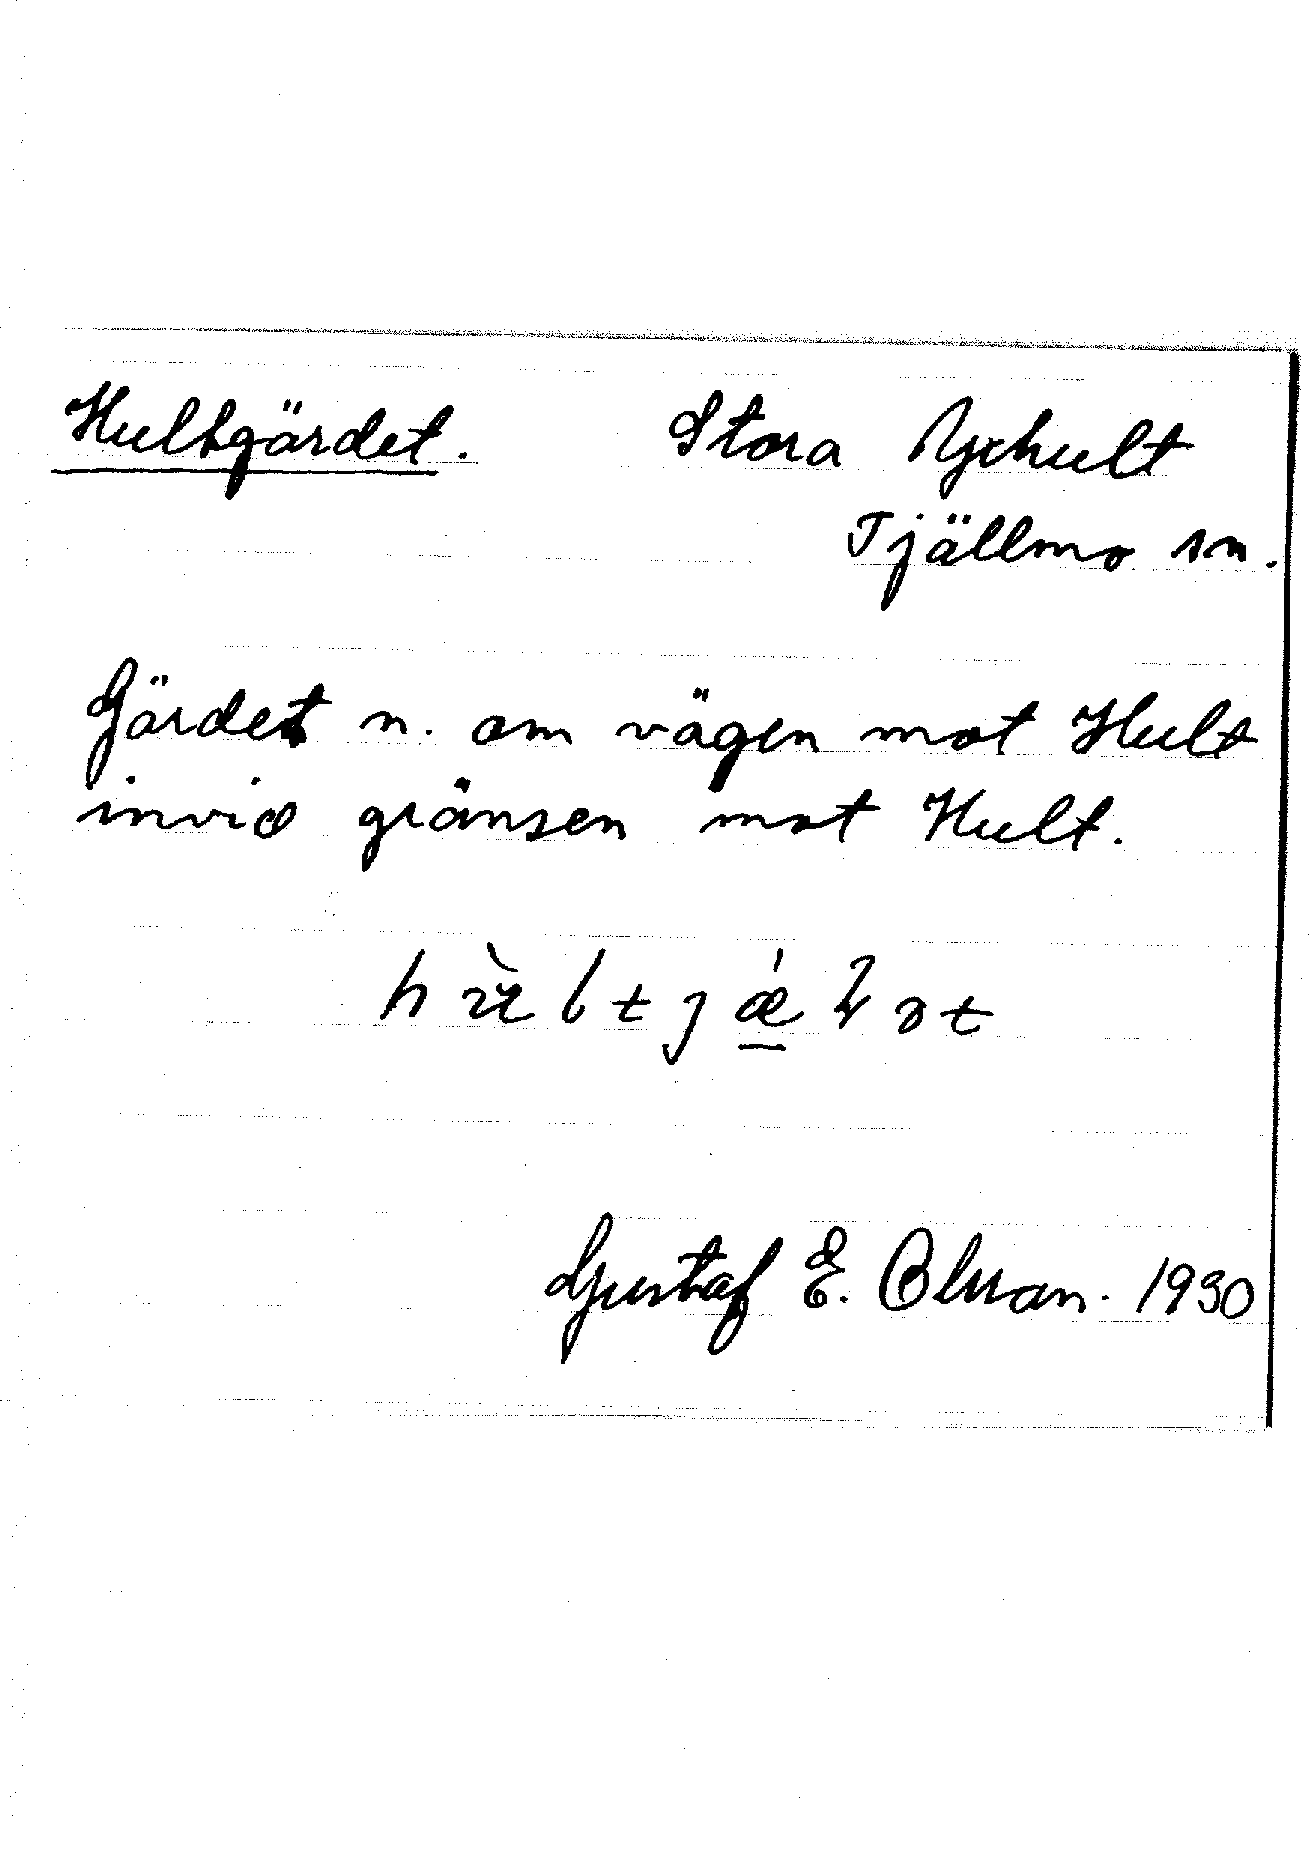 Hultgärdet. Stora Yxhult
Tjällmo sn.
Gärdet n. om vägen mot Hult
invid gränsen mot Hult.
Gustaf E. Olsson. 1930